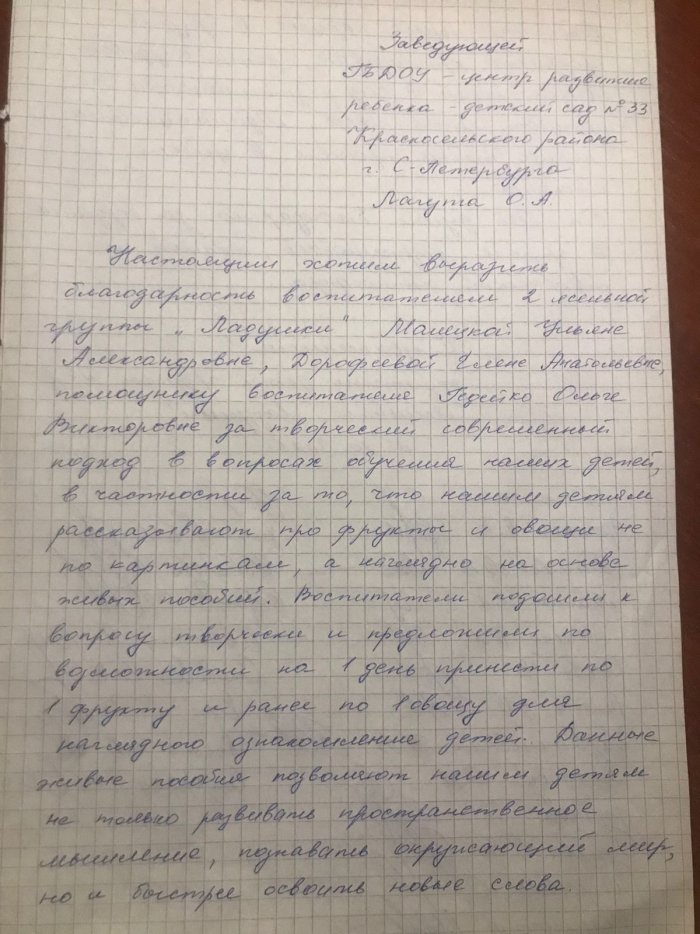 Заведующей
ГБДОУ - центр развития
ребенка - детский сад № 33
Красносельского района
г. С-Петербурга
Лагута О.А.
Настоящим хотим выразить
благодарность воспитателям 2 ясельной
группы "Ладушки" Малецкой Ульяне
Александровне, Дорофеевой Елене Анатольевне,
помощнику воспитателя Гедейко Ольге
Викторовне за творческий современный
подход в вопросах обучения наших детей,
в частности за то, что нашим детям
рассказывают про фрукты и овощи не
по картинкам, а наглядно на основе
живых пособий. Воспитатели подошли к
вопросу творчески и предложили по
возможности на 1 день принести по
1 фрукту и ранее по 1 овощу для
наглядного ознакомления детей. Данные
живые пособия позволяют нашим детям
не только развивать пространственное
мышление, познавать окружающий мир,
но и быстрее освоить новые слова.